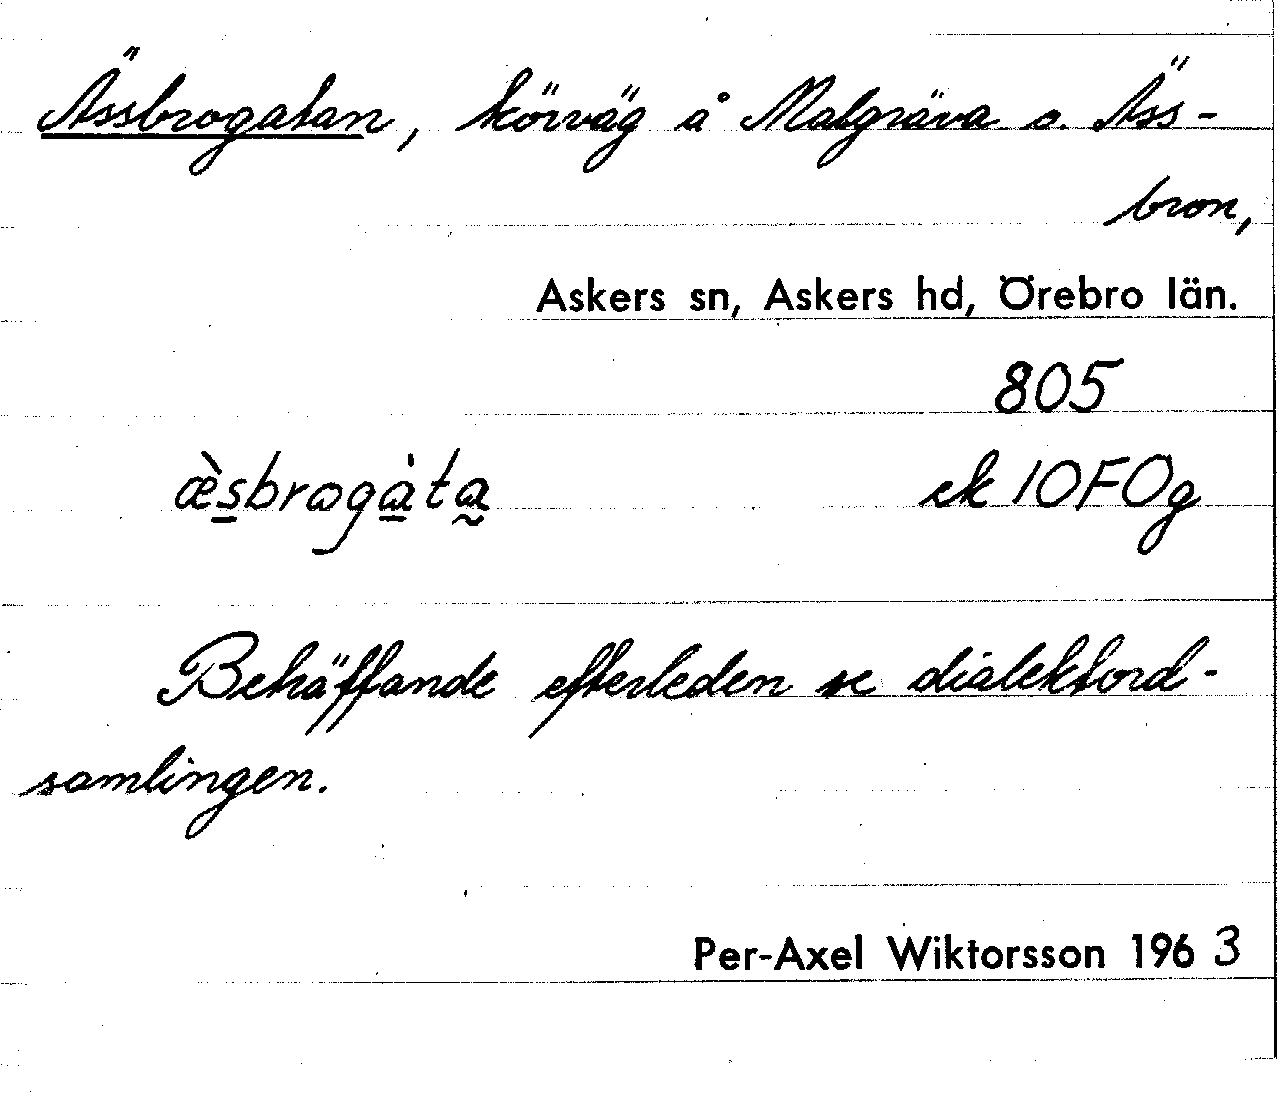 Ässbrogatan, körväg å Malgräva o. Äss-
bron,
Askers sn, Askers hd, Örebro län.
805
æ̀s̲brωgà̲ta̰
ek 10F0g
Behäffande efterleden se dialektord-
samlingen.
Per-Axel Wiktorsson 1963